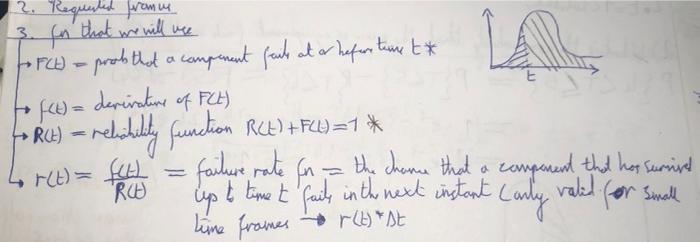 2. Requested
3. fn that we will use
→ F(t) = prob that a component fails at or before time t *
t
→ f(t) = derivative of F(t)
→ R(t) = reliability function R(t) + F(t) = 1 *
→ r(t) = f(t)/R(t) = failure rate fn = the chance that a component that has survived
up to time t fails in the next instant (only valid for small
time frames → r(t) * Δt